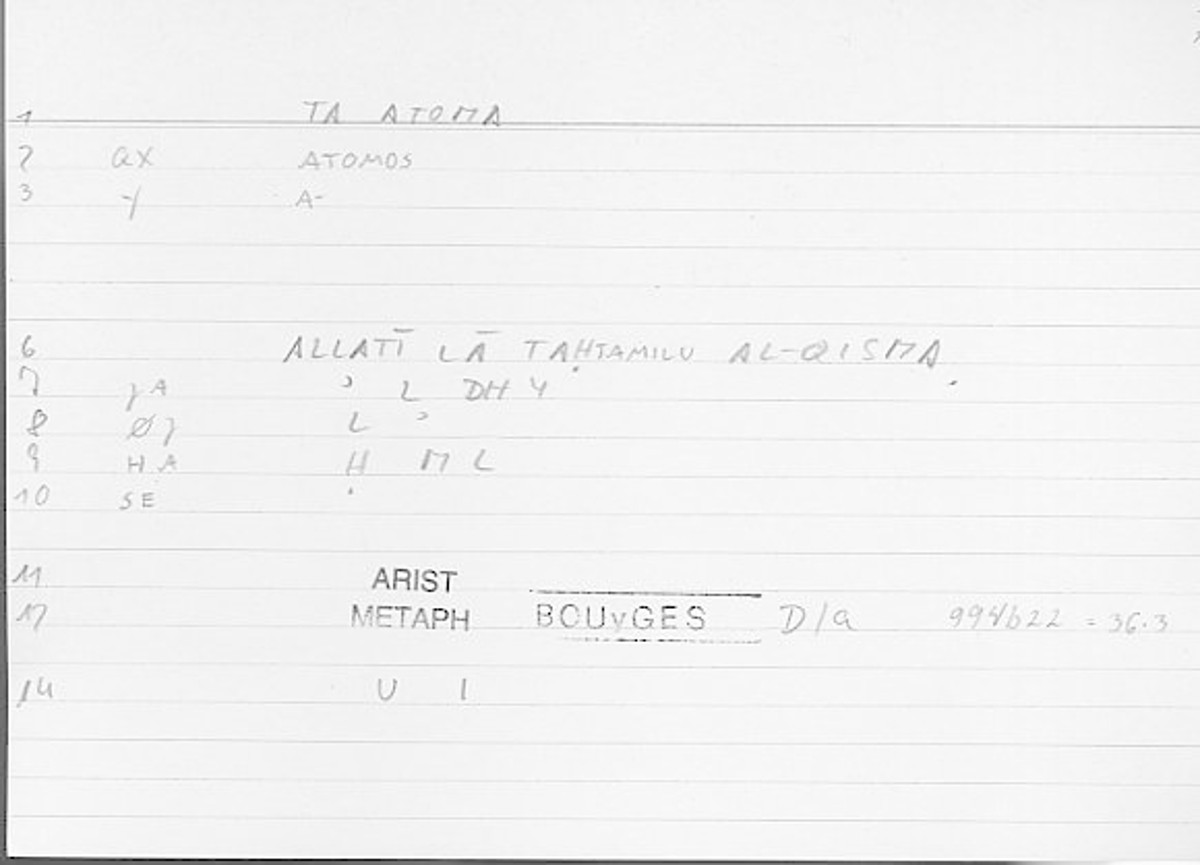 1 TA ATOMA
2 ax ATOMOS
3 -/ A-
6 ALLATĪ LĀ TAḤTAMILU AL-QISMA.
7 JA ʾ L DH Y
8 ØJ L ʾ
9 HA Ḥ M L
10 SE
11 ARIST
12 METAPH BOUyGES D/a 994b22 = 36.3
14 U I